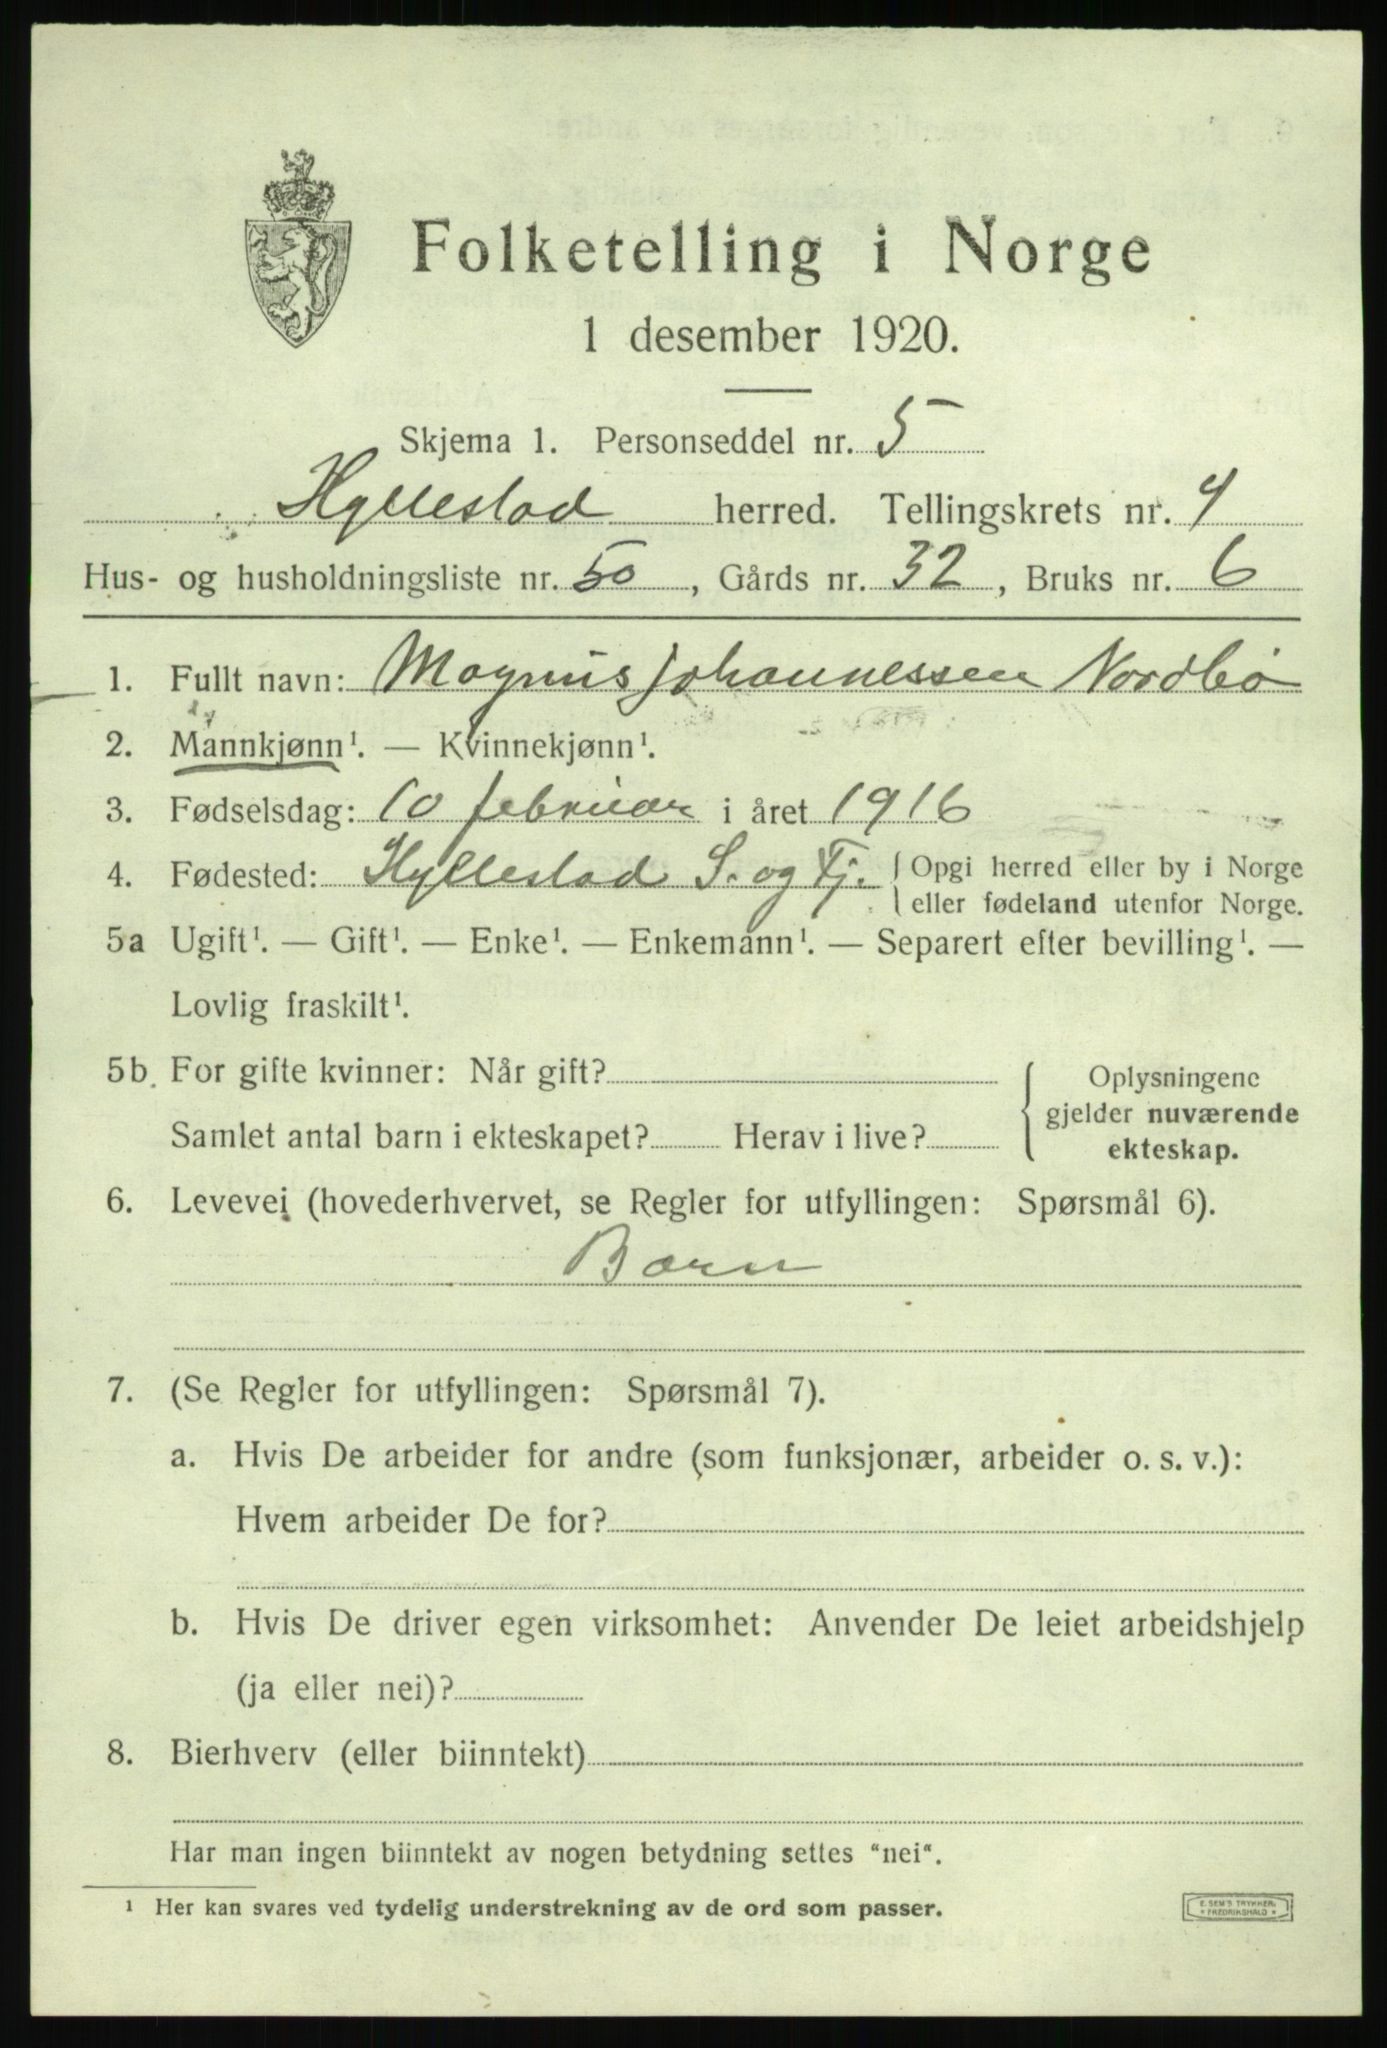 Folketelling i Norge
1 desember 1920.
Skjema 1. Personseddel nr. 5
Hyllestad herred. Tellingskrets nr. 4
Hus- og husholdningsliste nr. 50, Gårds nr. 32, Bruks nr. 6
1. Fullt navn: Magnus Johannessen Nordbø
2. Mannkjønn¹. — Kvinnekjønn¹.
3. Fødselsdag: 10 februar i året 1916
4. Fødested: Hyllestad S. og Fj. { Opgi herred eller by i Norge
eller fødeland utenfor Norge.
5a Ugift¹. — Gift¹. — Enke¹. — Enkemann¹. — Separert efter bevilling¹. —
Lovlig fraskilt¹.
5b. For gifte kvinner: Når gift?
Samlet antal barn i ekteskapet? Herav i live?
{ Oplysningene
gjelder nuværende
ekteskap.
6. Levevei (hovederhvervet, se Regler for utfyllingen: Spørsmål 6).
Barn
7. (Se Regler for utfyllingen: Spørsmål 7).
a. Hvis De arbeider for andre (som funksjonær, arbeider o. s. v.):
Hvem arbeider De for?
b. Hvis De driver egen virksomhet: Anvender De leiet arbeidshjelp
(ja eller nei)?
8. Bierhverv (eller biinntekt)
Har man ingen biinntekt av nogen betydning settes "nei".
¹ Her kan svares ved tydelig understrekning av de ord som passer.
E. SEM'S TRYKKERI
* FREDRIKSHALD *